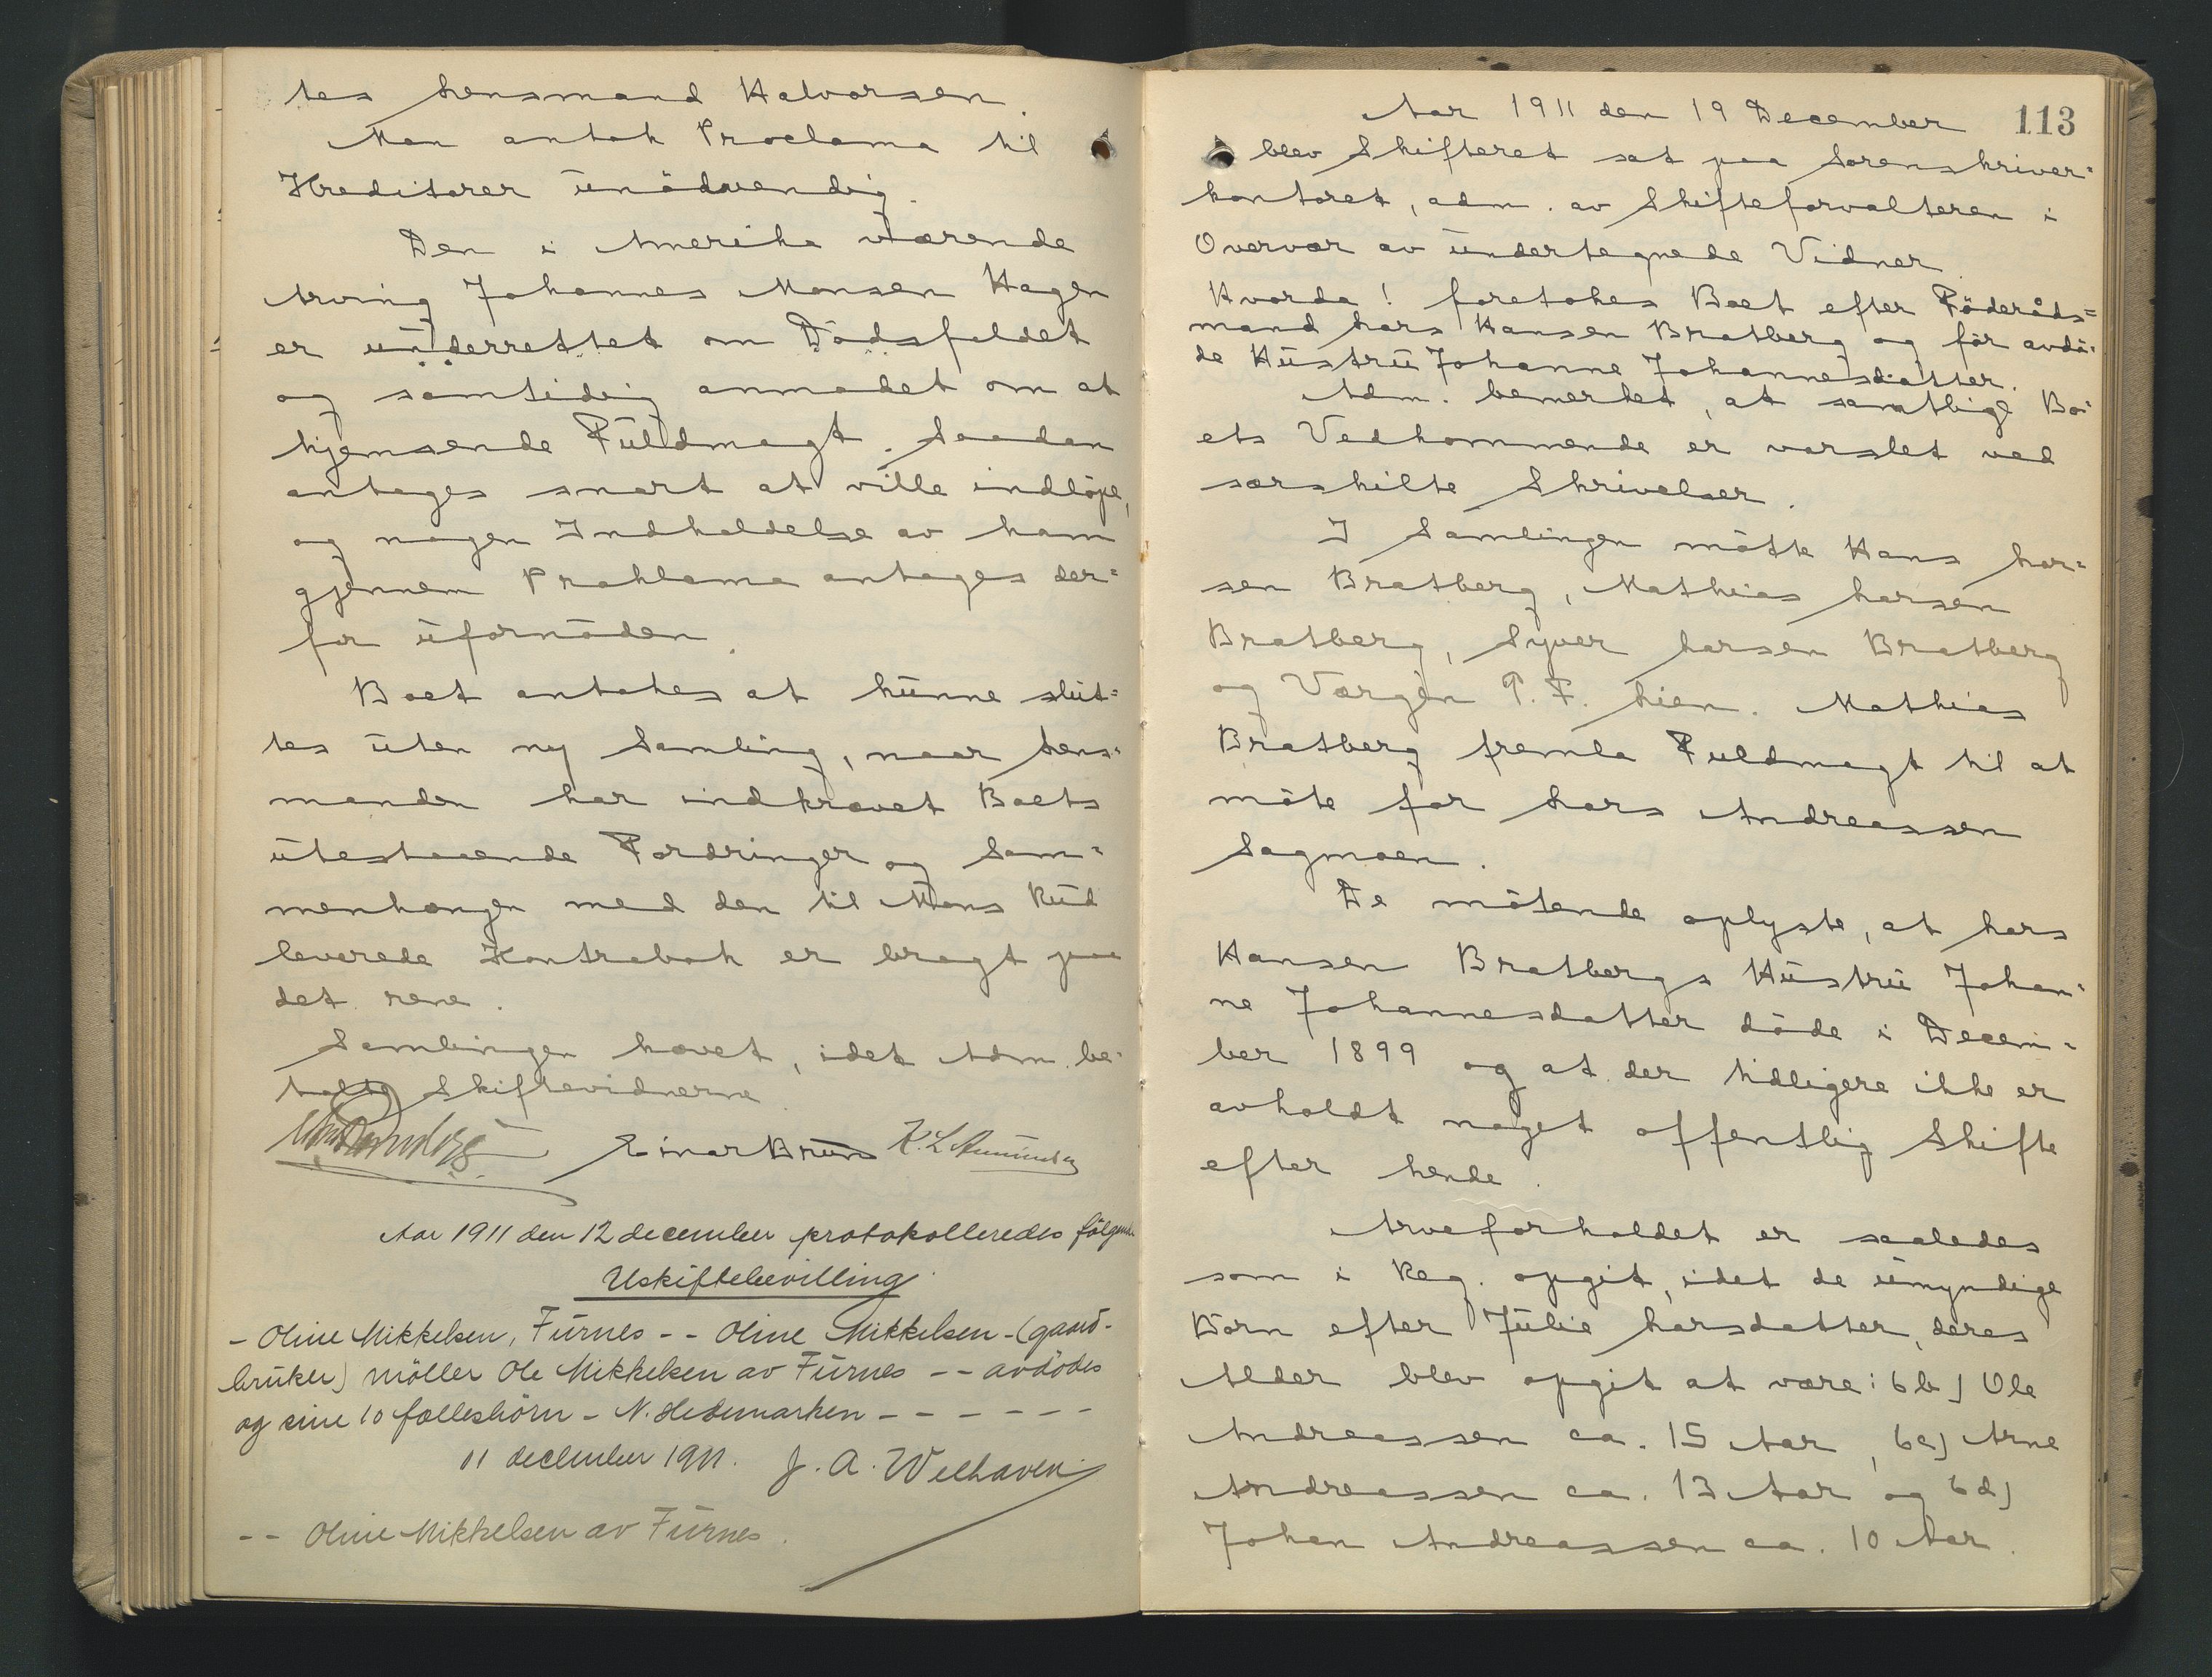 tes Lensmand Halvorsen.
Man antok Proclama til
Kreditorer unödvendig.
Den i Amerika værende
Arving Johannes Monsen Hagen
er underrettet om Dödsfaldet
og samtidig anmodet om at
hjemsende Fuldmagt. Saadan
antages snart at ville indlöpe,
og nogen Indkaldelse av ham
gjennem Proklama antages der=
for ufornöden.
Boet antokes at kunne slut=
tes uten ny Samling, naar Lens=
manden har indkrævet Boets
utestaaende Fordringer og Sam=
menhængen med den til Mons Rud
leverede Kontrabok er bragt paa
det rene.
Samlingen hævet, idet Adm. be=
talte Skiftevidnerne.
Einar Bruns K. L. Amundsen
Aar 1911 den 12 december protokolleredes følgende
Uskiftebevilling
- Oline Mikkelsen, Furnes - - Oline Mikkelsen - (gaard-
bruker) möller Ole Mikkelsen av Furnes - - avdödes
og sine 10 fællesbörn - N. Hedemarken - - - - - -
11 december 1911. J. A. Welhaven
- - Oline Mikkelsen av Furnes.
113
Aar 1911 den 19 December
blev Skifteret sat paa Sorenskriver=
kontoret, adm. av Skifteforvalteren i
Overvær av undertegnede Vidner.
Hvorda! foretokes Boet efter Föderåds=
mand Lars Hansen Bratberg og för avdö=
de Hustru Johanne Johannesdatter.
Adm. bemerket, at samtlige Bo=
ets Vedkommende er varslet ved
særskilte Skrivelser.
I Samlingen mötte Hans Lar=
sen Bratberg, Mathias Larsen
Bratberg, Syver Larsen Bratberg
og Værgen P. F. Lien. Mathias
Bratberg fremla Fuldmagt til at
möte for Lars Andreassen
Sagmoen.
De mötende oplyste, at Lars
Hansen Bratbergs Hustru Johan=
ne Johannesdatter döde i Decem=
ber 1899 og at der tidligere ikke er
avholdt noget offentlig Skifte
efter hende.
Arveforholdet er saaledes
som i Reg. opgit, idet de umyndige
Börn efter Julie Larsdatter, deres
Alder blev opgit at være: 6b) Ole
Andreassen ca. 15 Aar, 6c) Arne
Andreassen ca. 13 Aar og 6d)
Johan Andreassen ca. 10 Aar.